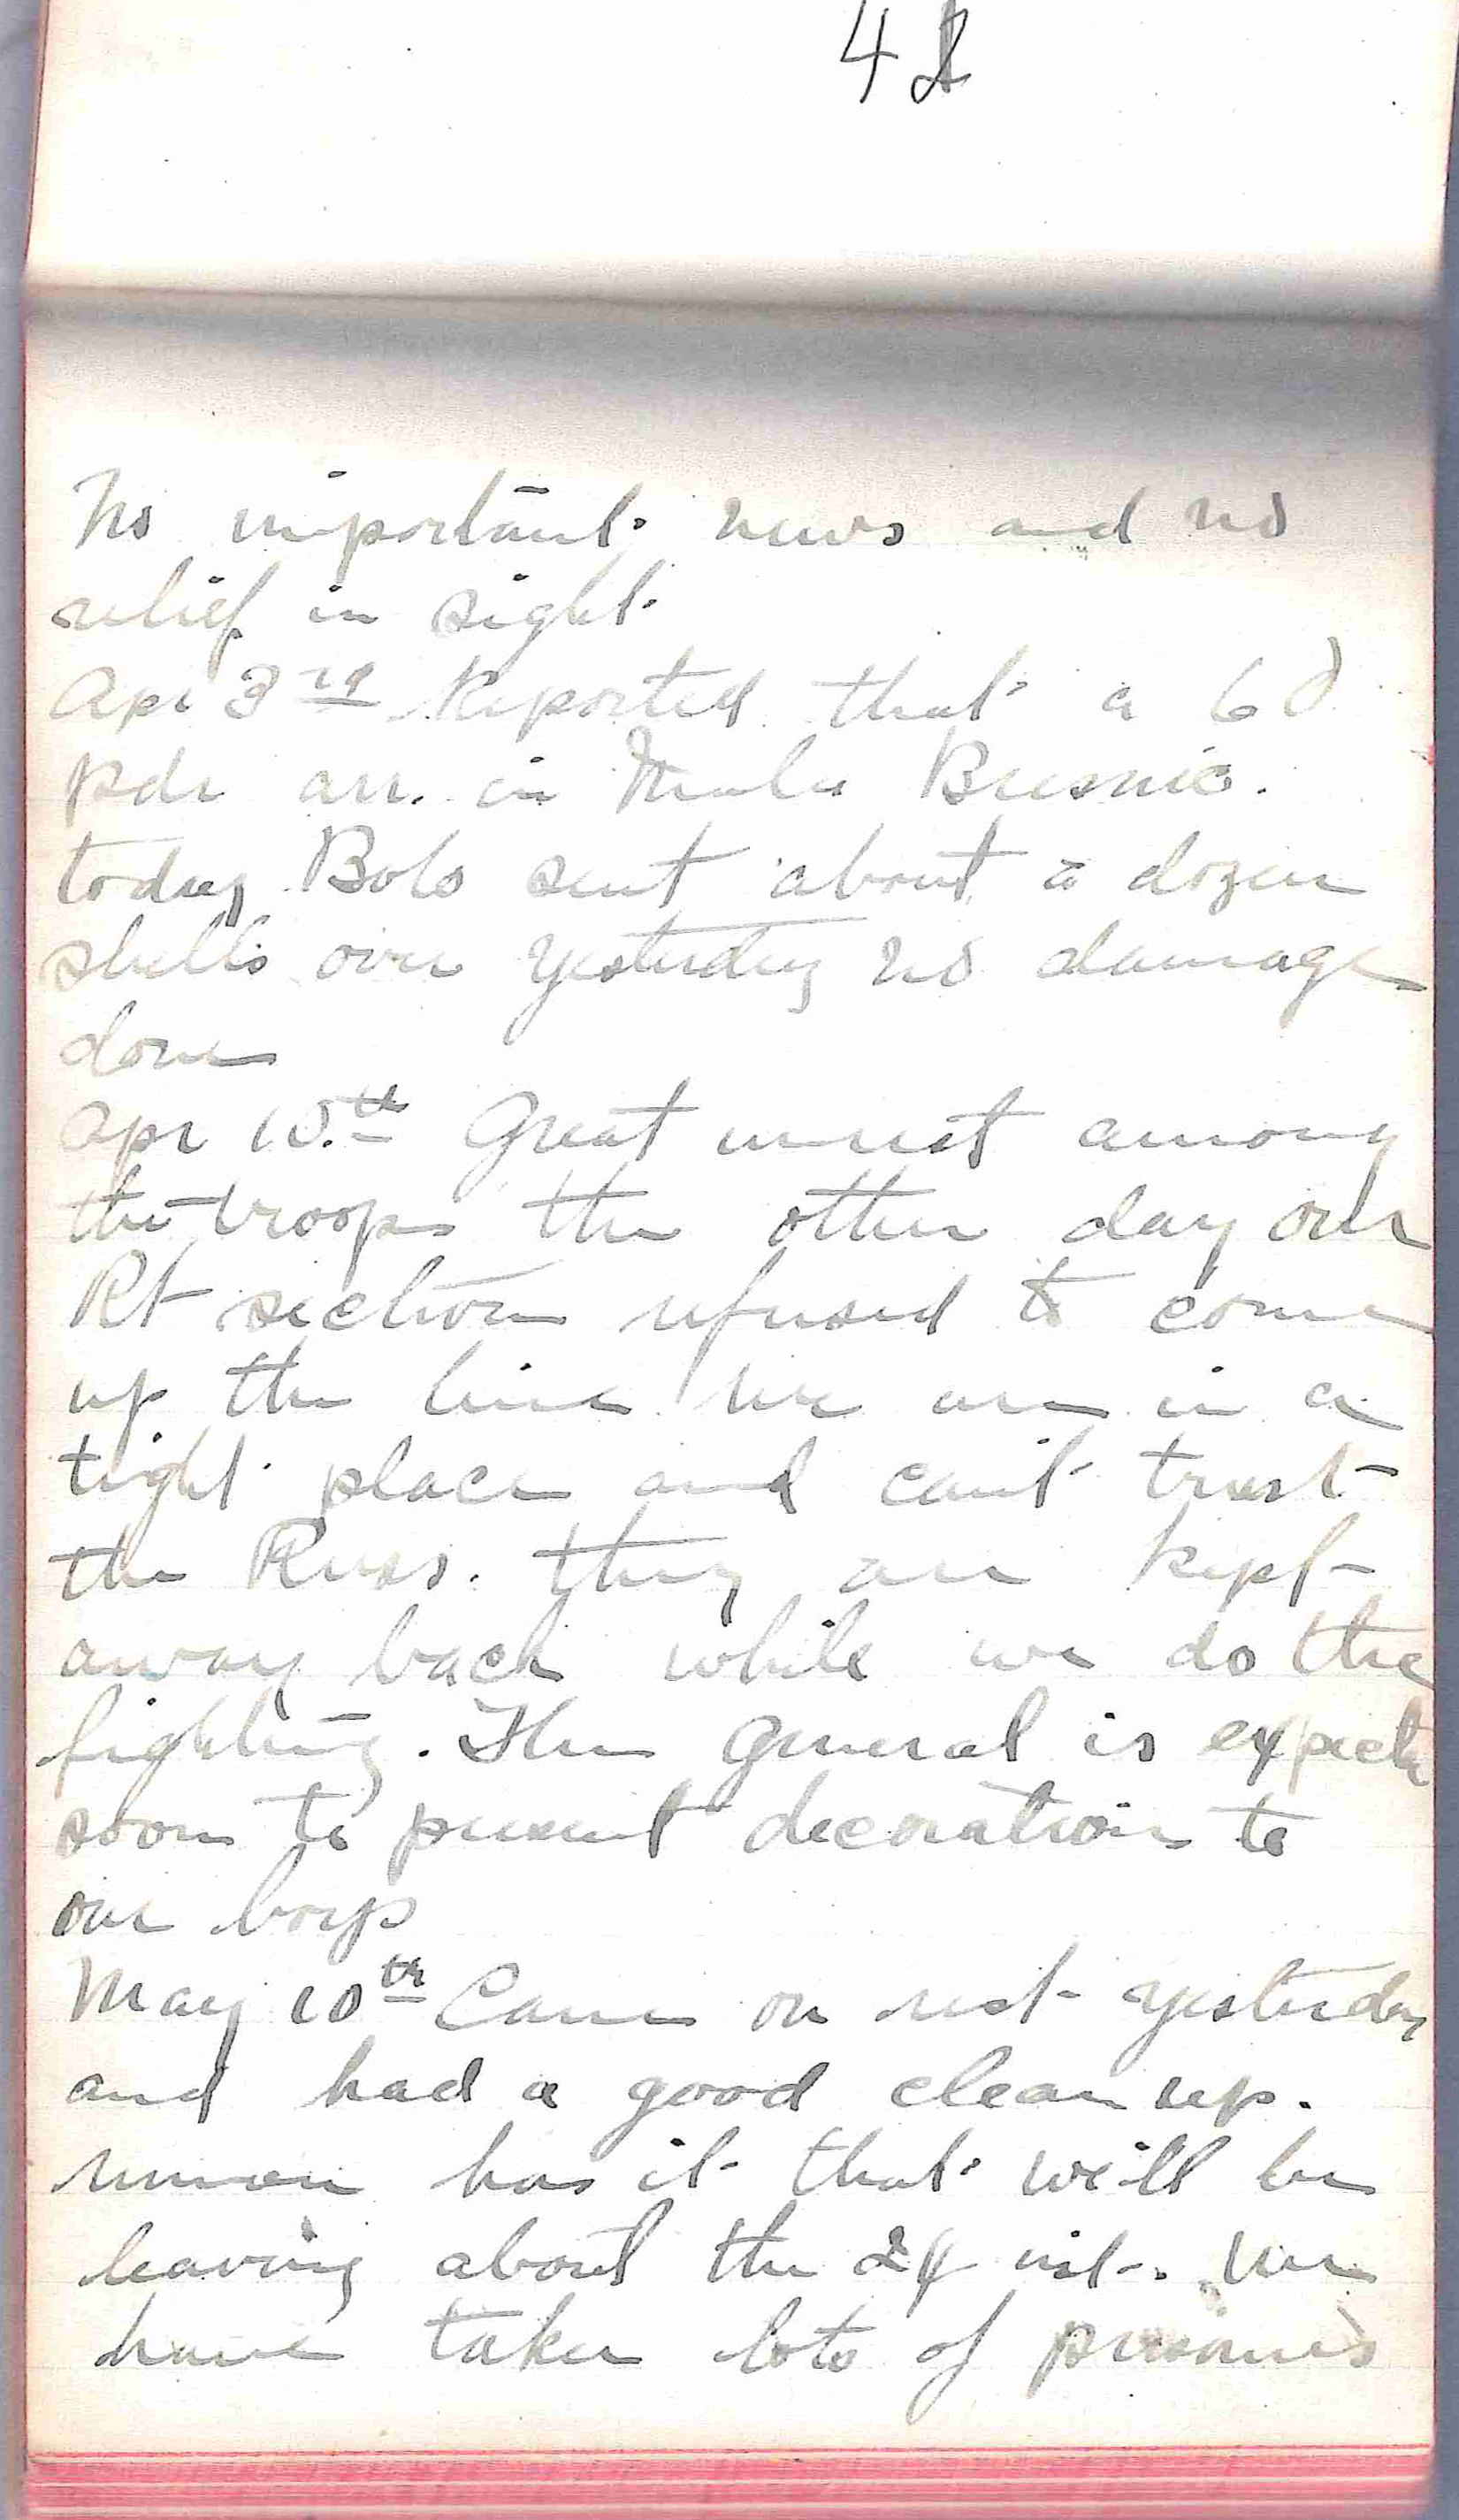 No important news and no
relief in sight.
Apr 3rd Reported that a 60
pdr arr. in Mala Bresnic.
today Bolo sent about a dozen
shells over yesterday no damage
done
Apr 10.th Great unrest among
the troops the other day our
Rt section refused to come
up the line. We are in a
tight place and can't trust
the Russ. they are kept
away back while we do the
fighting. The General is expect
soon to present decoration to
our boys
May 10th Came on rest yesterday
and had a good clean up.
rumor has it that we'll be
leaving about the 24 inst. We
have taken lots of prisoners